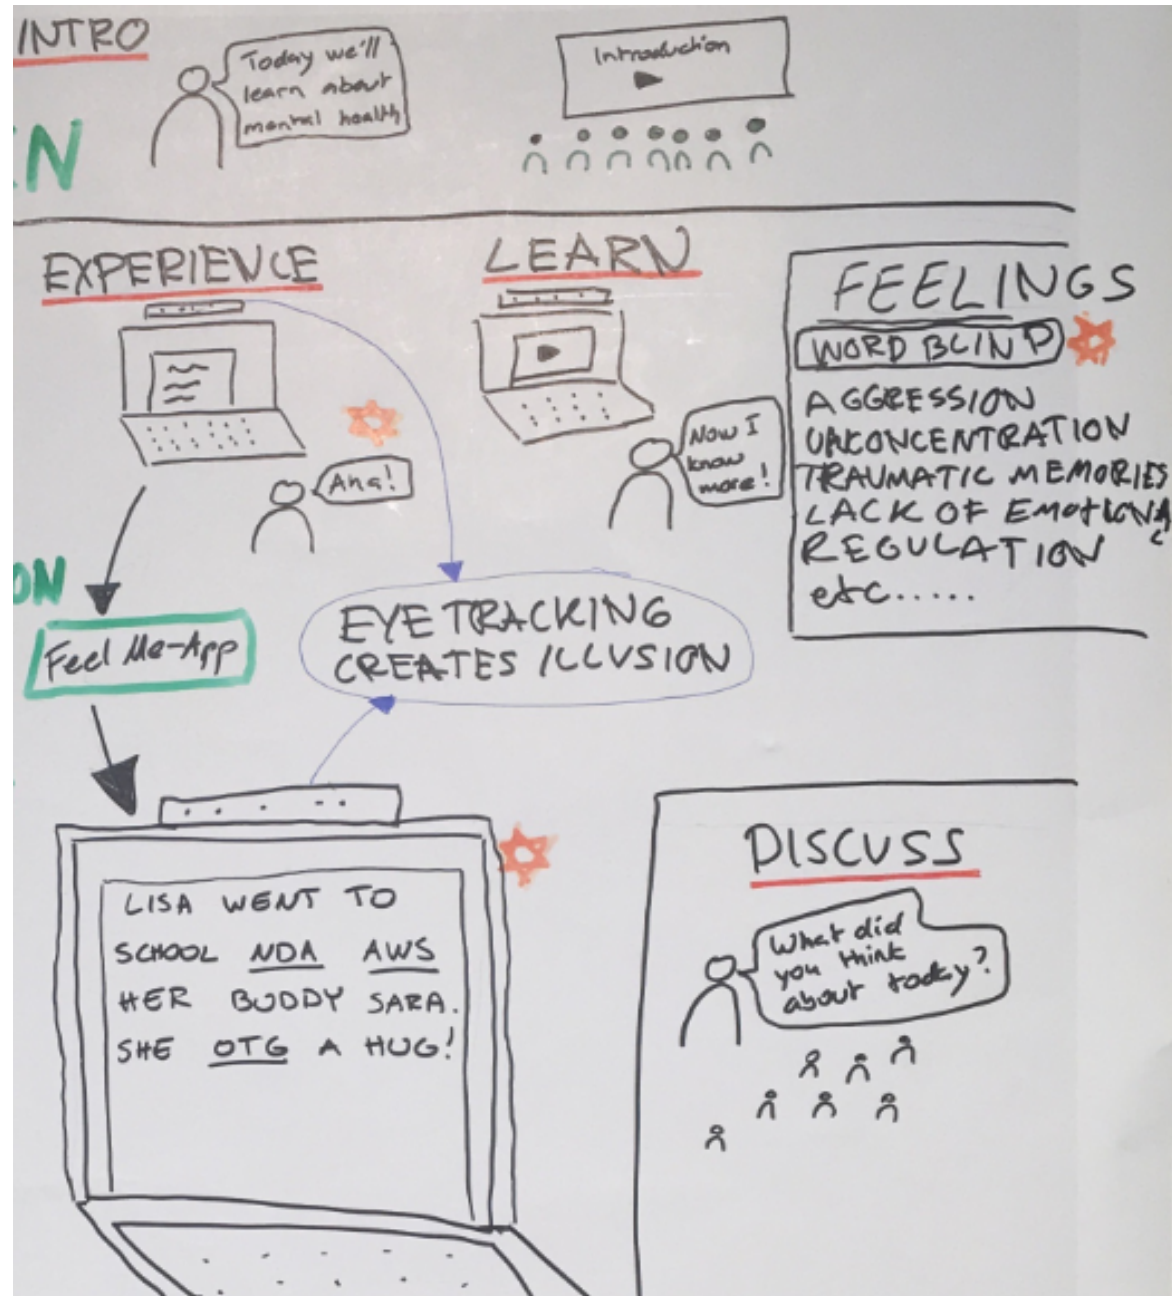 INTRO
Today we'll
learn about
mental health
Introduction
N
EXPERIENCE
Aha!
LEARN
Now I
know
more!
FEELINGS
WORD BLIND
AGGRESSION
UNCONCENTRATION
TRAUMATIC MEMORIES
LACK OF EMOTIONAL
REGULATION
etc.....
ON
Feel Me-App
EYE TRACKING
CREATES ILLUSION
LISA WENT TO
SCHOOL NDA AWS
HER BUDDY SARA.
SHE OTG A HUG!
DISCUSS
What did
you think
about today?